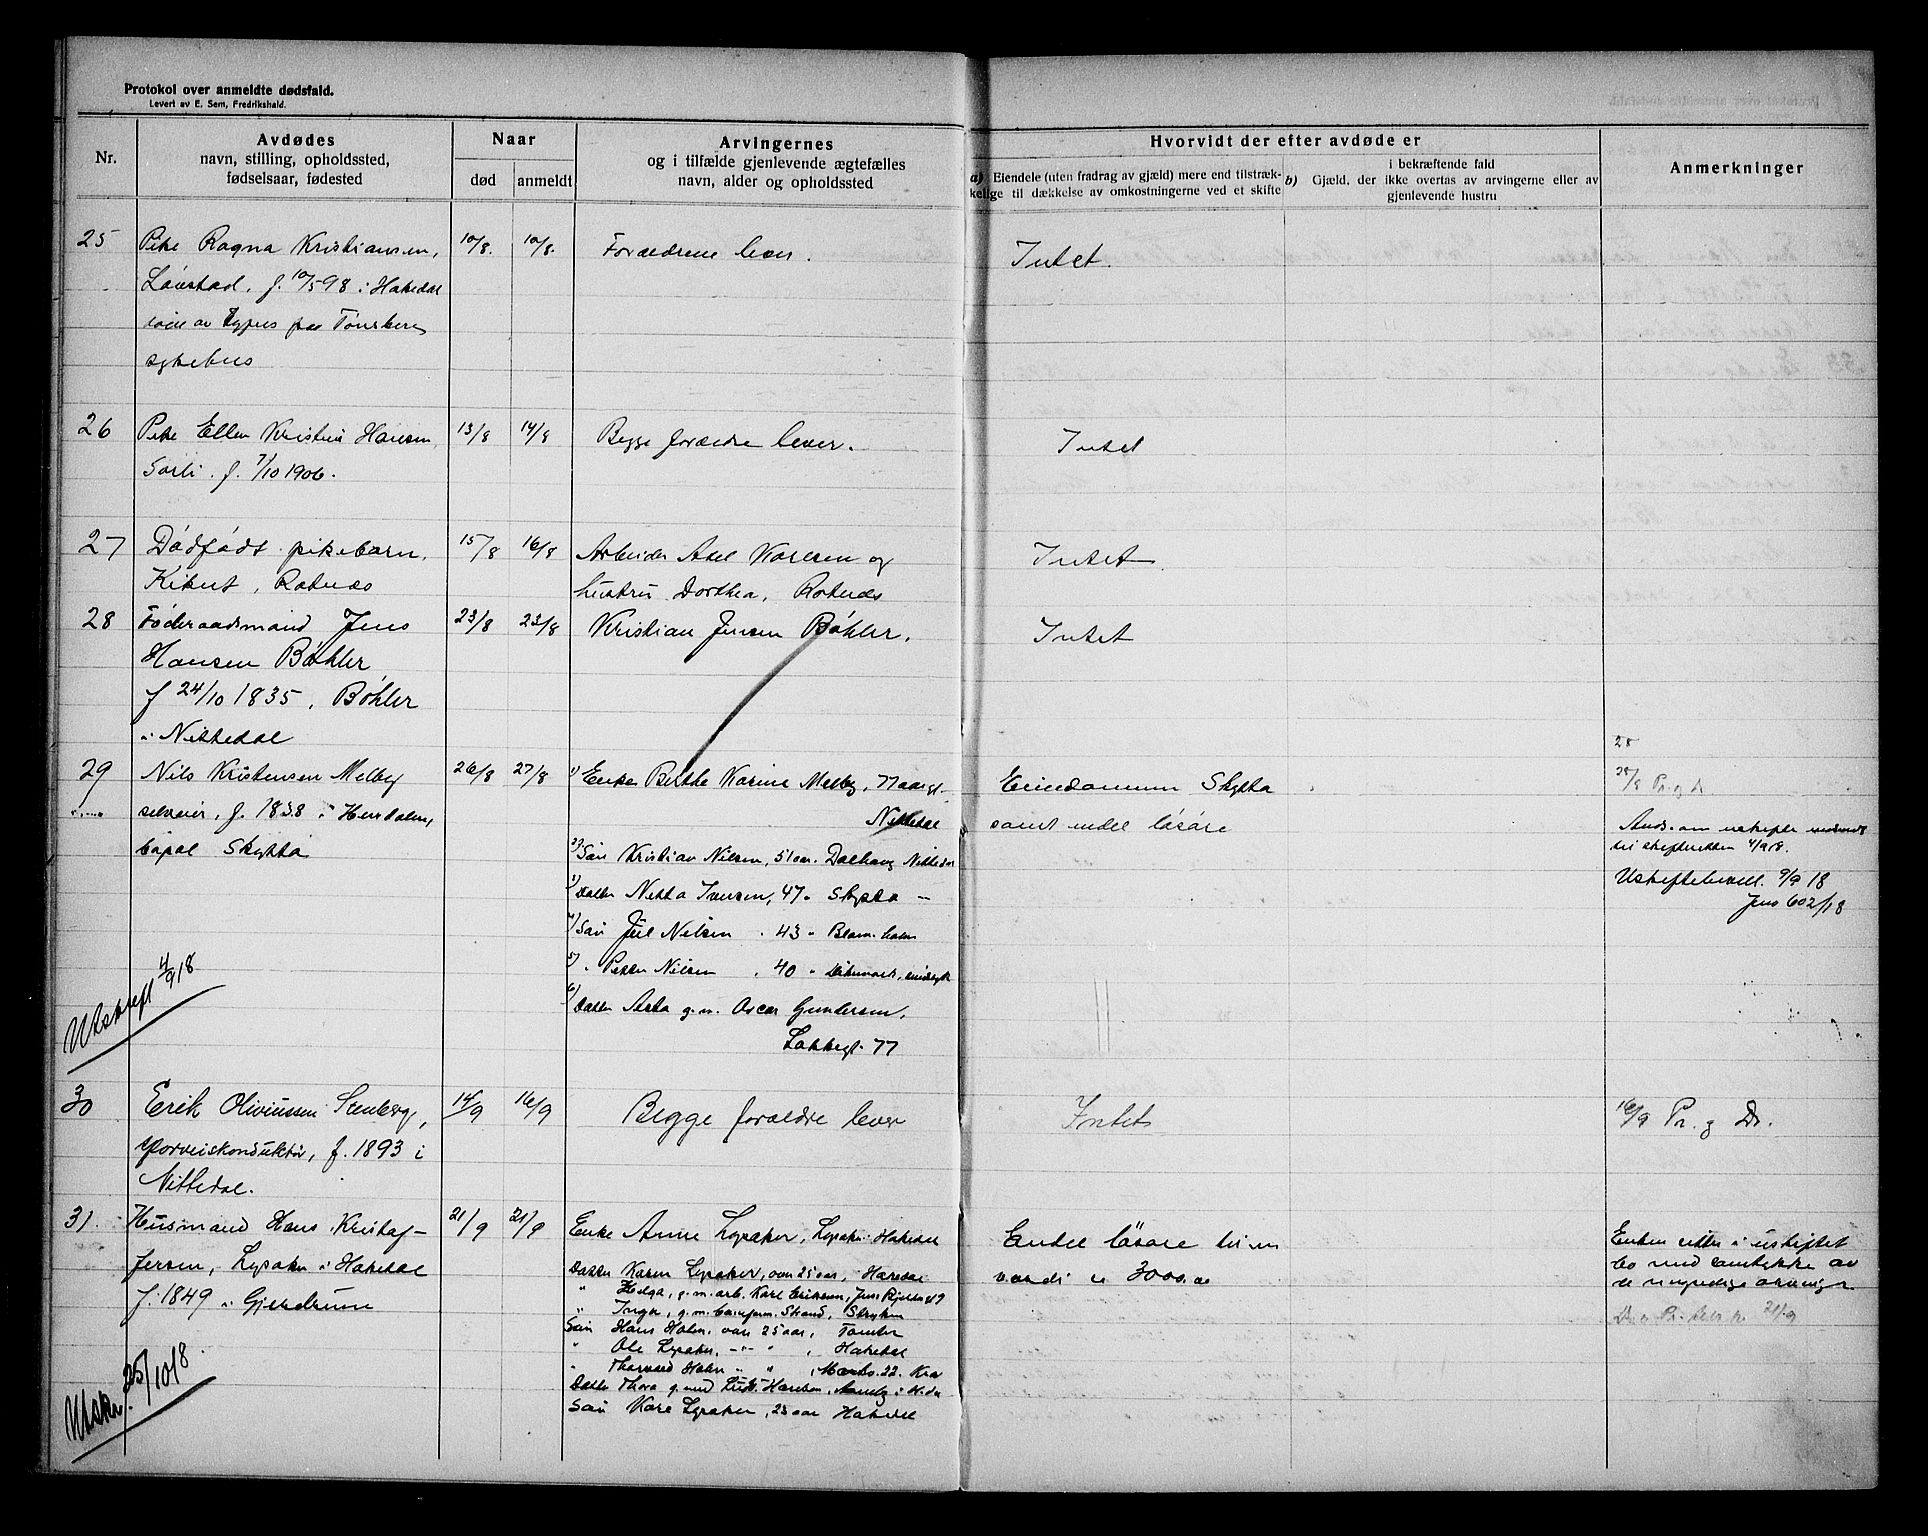 Protokol over anmeldte dødsfald.
Levert av E. Sem, Fredrikshald.
Nr.
Avdødes
navn, stilling, opholdssted,
fødselsaar, fødested
Naar
død
anmeldt
Arvingernes
og i tilfælde gjenlevende ægtefælles
navn, alder og opholdssted
Hvorvidt der efter avdøde er
a) Eiendele (uten fradrag av gjæld) mere end tilstræk-
kelige til dækkelse av omkostningerne ved et skifte
b) i bekræftende fald
Gjæld, der ikke overtas av arvingerne eller av
gjenlevende hustru
Anmerkninger
25 Pike Ragna Kristiansen, 10/8. 10/8. Forældrene lever. Intet.
Løvstad, f. 10/5 98 i Hakedal
av Typus paa Tønsberg
sykehus
26 Pike Ellen Kristine Hansen 13/8 14/8 Begge forældre lever. Intet
Sørli. f. 7/10 1906.
27 Dødfødt pikebarn, 15/8 16/8 Arbeider Axel Karlsen og Intet
Kikut, Rotnæs hustru Dorthea, Rotnæs
28 Føderaadsmand Jens 23/8 23/8 Kristian Jensen Bøhler. Intet
Hansen Bøhler
f 24/10 1835, Bøhler
i Nittedal
28
29 Nils Kristensen Melby 26/8 27/8 1) Enke Berthe Karine Melby, 77 aar Eiendommen Skytta 28/8 Pr. og Dr
selveier, f. 1838 i Nittedal samt endel løsøre
Skytta
2) Søn Kristian Nilsen, 51 aar. Dalhaug Nittedal
3) Datter Netta Iversen, 47 " Skytta —
4) Søn Juel Nilsen . 43 "
5) " Petter Nilsen . 40 "
6) Datter Asta g.m. Oscar Gundersen,
Lakkegt. 77
And. om uskifte
til skifteretten 4/9 18.
Uskiftebevill. 9/9 18
Jno 602/18
Utskrift 4/9 18
30 Erik Oliviussen Stenberg, 14/9 16/9 Begge forældre lever Intet 16/9 Pr. og Dr.
sporveiskonduktør, f. 1893 i
Nittedal.
31. Husmand Hans Kristof- 21/9 21/9 Enke Anne Lysaker, Lysaker i Hakedal Endel løsøre til en Enken sitter i uskiftet
fersen, Lysaker i Hakedal Datter Karen Lysaker, over 25 aar, Hakedal værdi a 3000.00 bo med samtykke av
f. 1849 i Gjerdrum " Helga, g.m. arb. Karl Eriksen, de myndige arvinger
" Inga, g.m. Strand, Stryken
Søn Hans Holm. over 25 aar,
" Ole Lysaker, —"— " , Hakedal
" Thorvald Holm " " , 22. Kra
Datter Thora g. med Hansen,
Søn Kåre Lysaker, 23 aar Hakedal
21/9
Utskr. 25/10 18.